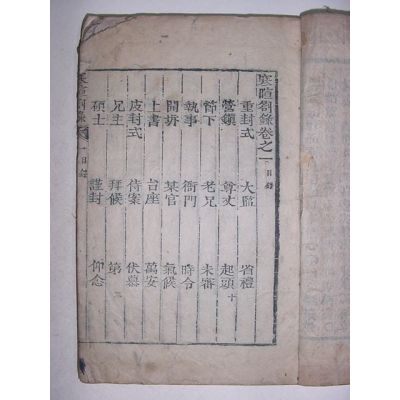 寒暄劄錄卷之一 目錄
重封式 大監 省禮
營鎭 尊丈 起頭 十
節下 老兄 未審
執事 衙門 時令
開拆 某官 氣候
上書 台座 萬安
皮封式 侍案 伏慕
兄主 拜候 第
碩士 謹封 仰念
寒暄劄錄 一 目錄